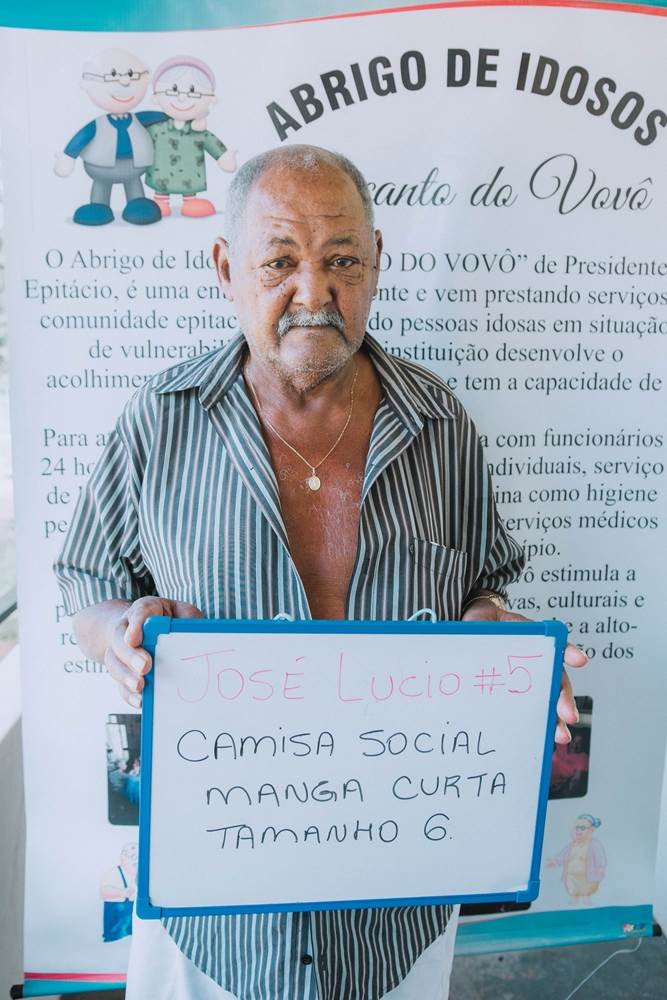 ABRIGO DE IDOSOS
canto do Vovô
O Abrigo de O DO VOVÔ” de Presidente
Epitácio, é uma e vem prestando serviços
comunidade pessoas idosas em situação
de instituição desenvolve o
e tem a capacidade de
Para com funcionários
24 serviço
de como higiene
serviços médicos
estimula a
culturais e
e a alto-
dos
JOSÉ LUCIO #5
CAMISA SOCIAL
MANGA CURTA
TAMANHO 6.